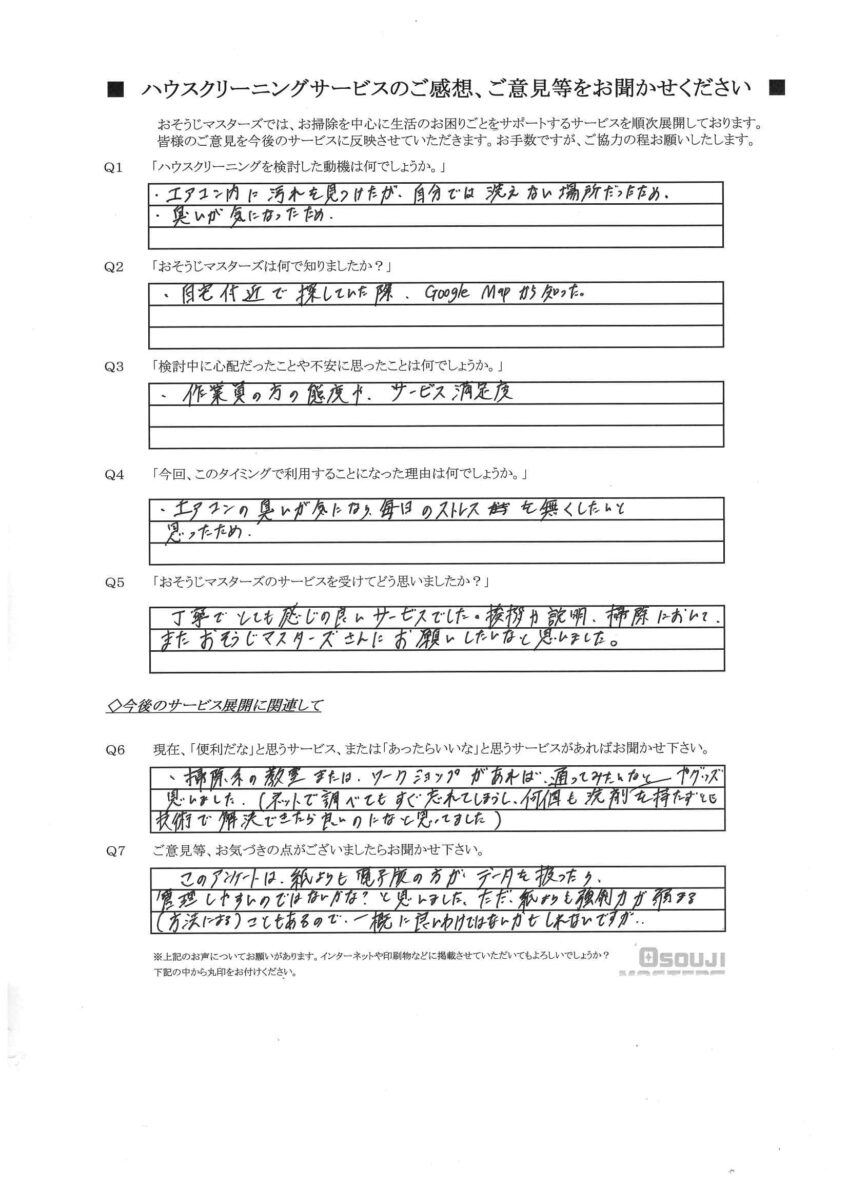 ■ ハウスクリーニングサービスのご感想、ご意見等をお聞かせください ■
おそうじマスターズでは、お掃除を中心に生活のお困りごとをサポートするサービスを順次展開しております。
皆様のご意見を今後のサービスに反映させていただきます。お手数ですが、ご協力の程お願いしたします。
Q1 「ハウスクリーニングを検討した動機は何でしょうか。」
・エアコン内に汚れを見つけたが、自分では洗えない場所だったため。
・臭いが気になったため。
Q2 「おそうじマスターズは何で知りましたか？」
・自宅付近で探していた際、Google Mapから知った。
Q3 「検討中に心配だったことや不安に思ったことは何でしょうか。」
・作業員の方の態度や、サービス満足度
Q4 「今回、このタイミングで利用することになった理由は何でしょうか。」
・エアコンの臭いが気になり、毎日のストレスを無くしたいと
思ったため。
Q5 「おそうじマスターズのサービスを受けてどう思いましたか？」
丁寧でとても感じの良いサービスでした。挨拶や説明、掃除において、
またおそうじマスターズさんにお願いしたいなと思いました。
◇今後のサービス展開に関連して
Q6 現在、「便利だな」と思うサービス、または「あったらいいな」と思うサービスがあればお聞かせ下さい。
・掃除系の教室または、ワークショップがあれば、通ってみたいなと やグッズ
思いました。（ネットで調べてもすぐ忘れてしまうし、何個も洗剤を持たずとも
技術で解決できたら良いのになと思ってました）
Q7 ご意見等、お気づきの点がございましたらお聞かせ下さい。
このアンケートは、紙よりも電子版の方がデータを扱ったり、
管理しやすいのではないかな？と思いました。ただ、紙よりも強制力が弱まる
（方法による）こともあるので、一概に良いわけではないかもしれないですが..
※上記のお声についてお願いがあります。インターネットや印刷物などに掲載させていただいてもよろしいでしょうか？
下記の中から丸印をお付けください。
OSOUJI